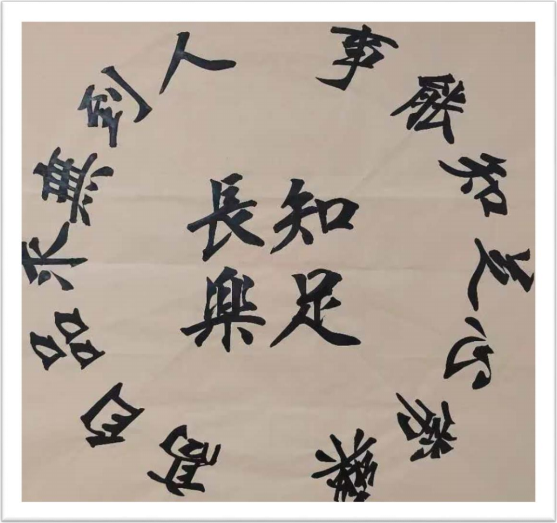 知足
長樂
事能知足心常樂
人到無求品自高